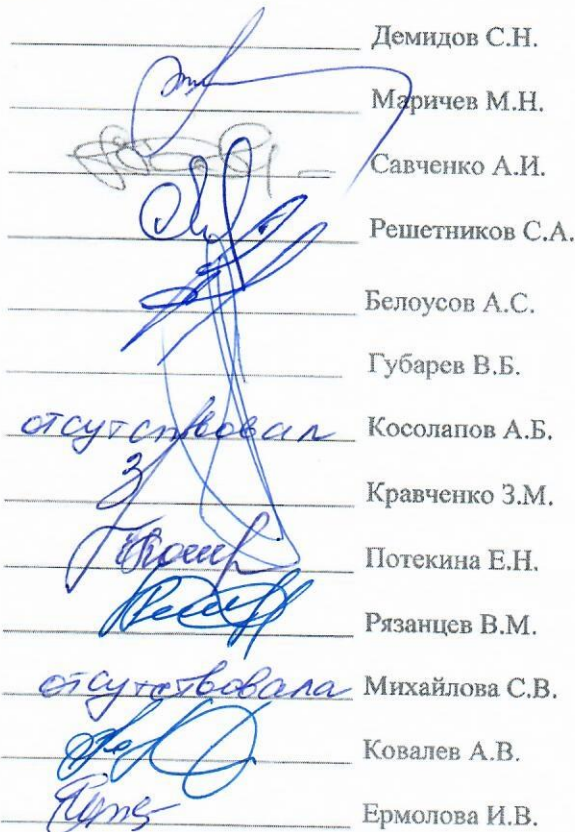 Демидов С.Н.
Маричев М.Н.
Савченко А.И.
Решетников С.А.
Белоусов А.С.
Губарев В.Б.
отсутствовал Косолапов А.Б.
Кравченко З.М.
Потекина Е.Н.
Рязанцев В.М.
отсутствовала Михайлова С.В.
Ковалев А.В.
Ермолова И.В.